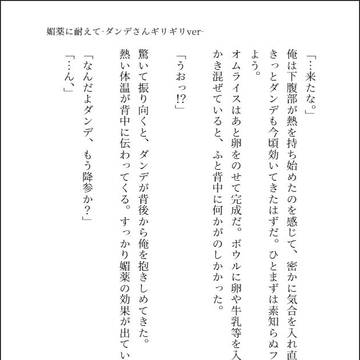 媚薬に耐えて-ダンデさんギリギリver-
『…来たな。』
俺は下腹部が熱を持ち始めたのを感じて、密かに気合を入れ直
きっとダンデも今頃効いてきたはずだ。ひとまずは素知らぬフ
よう。
オムライスはあと卵をのせて完成だ。ボウルに卵や牛乳等を入
かき混ぜていると、ふと背中に何かがのしかかった。
『うおっ!?』
驚いて振り向くと、ダンデが背後から俺を抱きしめてきた。
熱い体温が背中に伝わってくる。すっかり媚薬の効果が出てい
『なんだよダンデ、もう降参か?』
『…ん、』